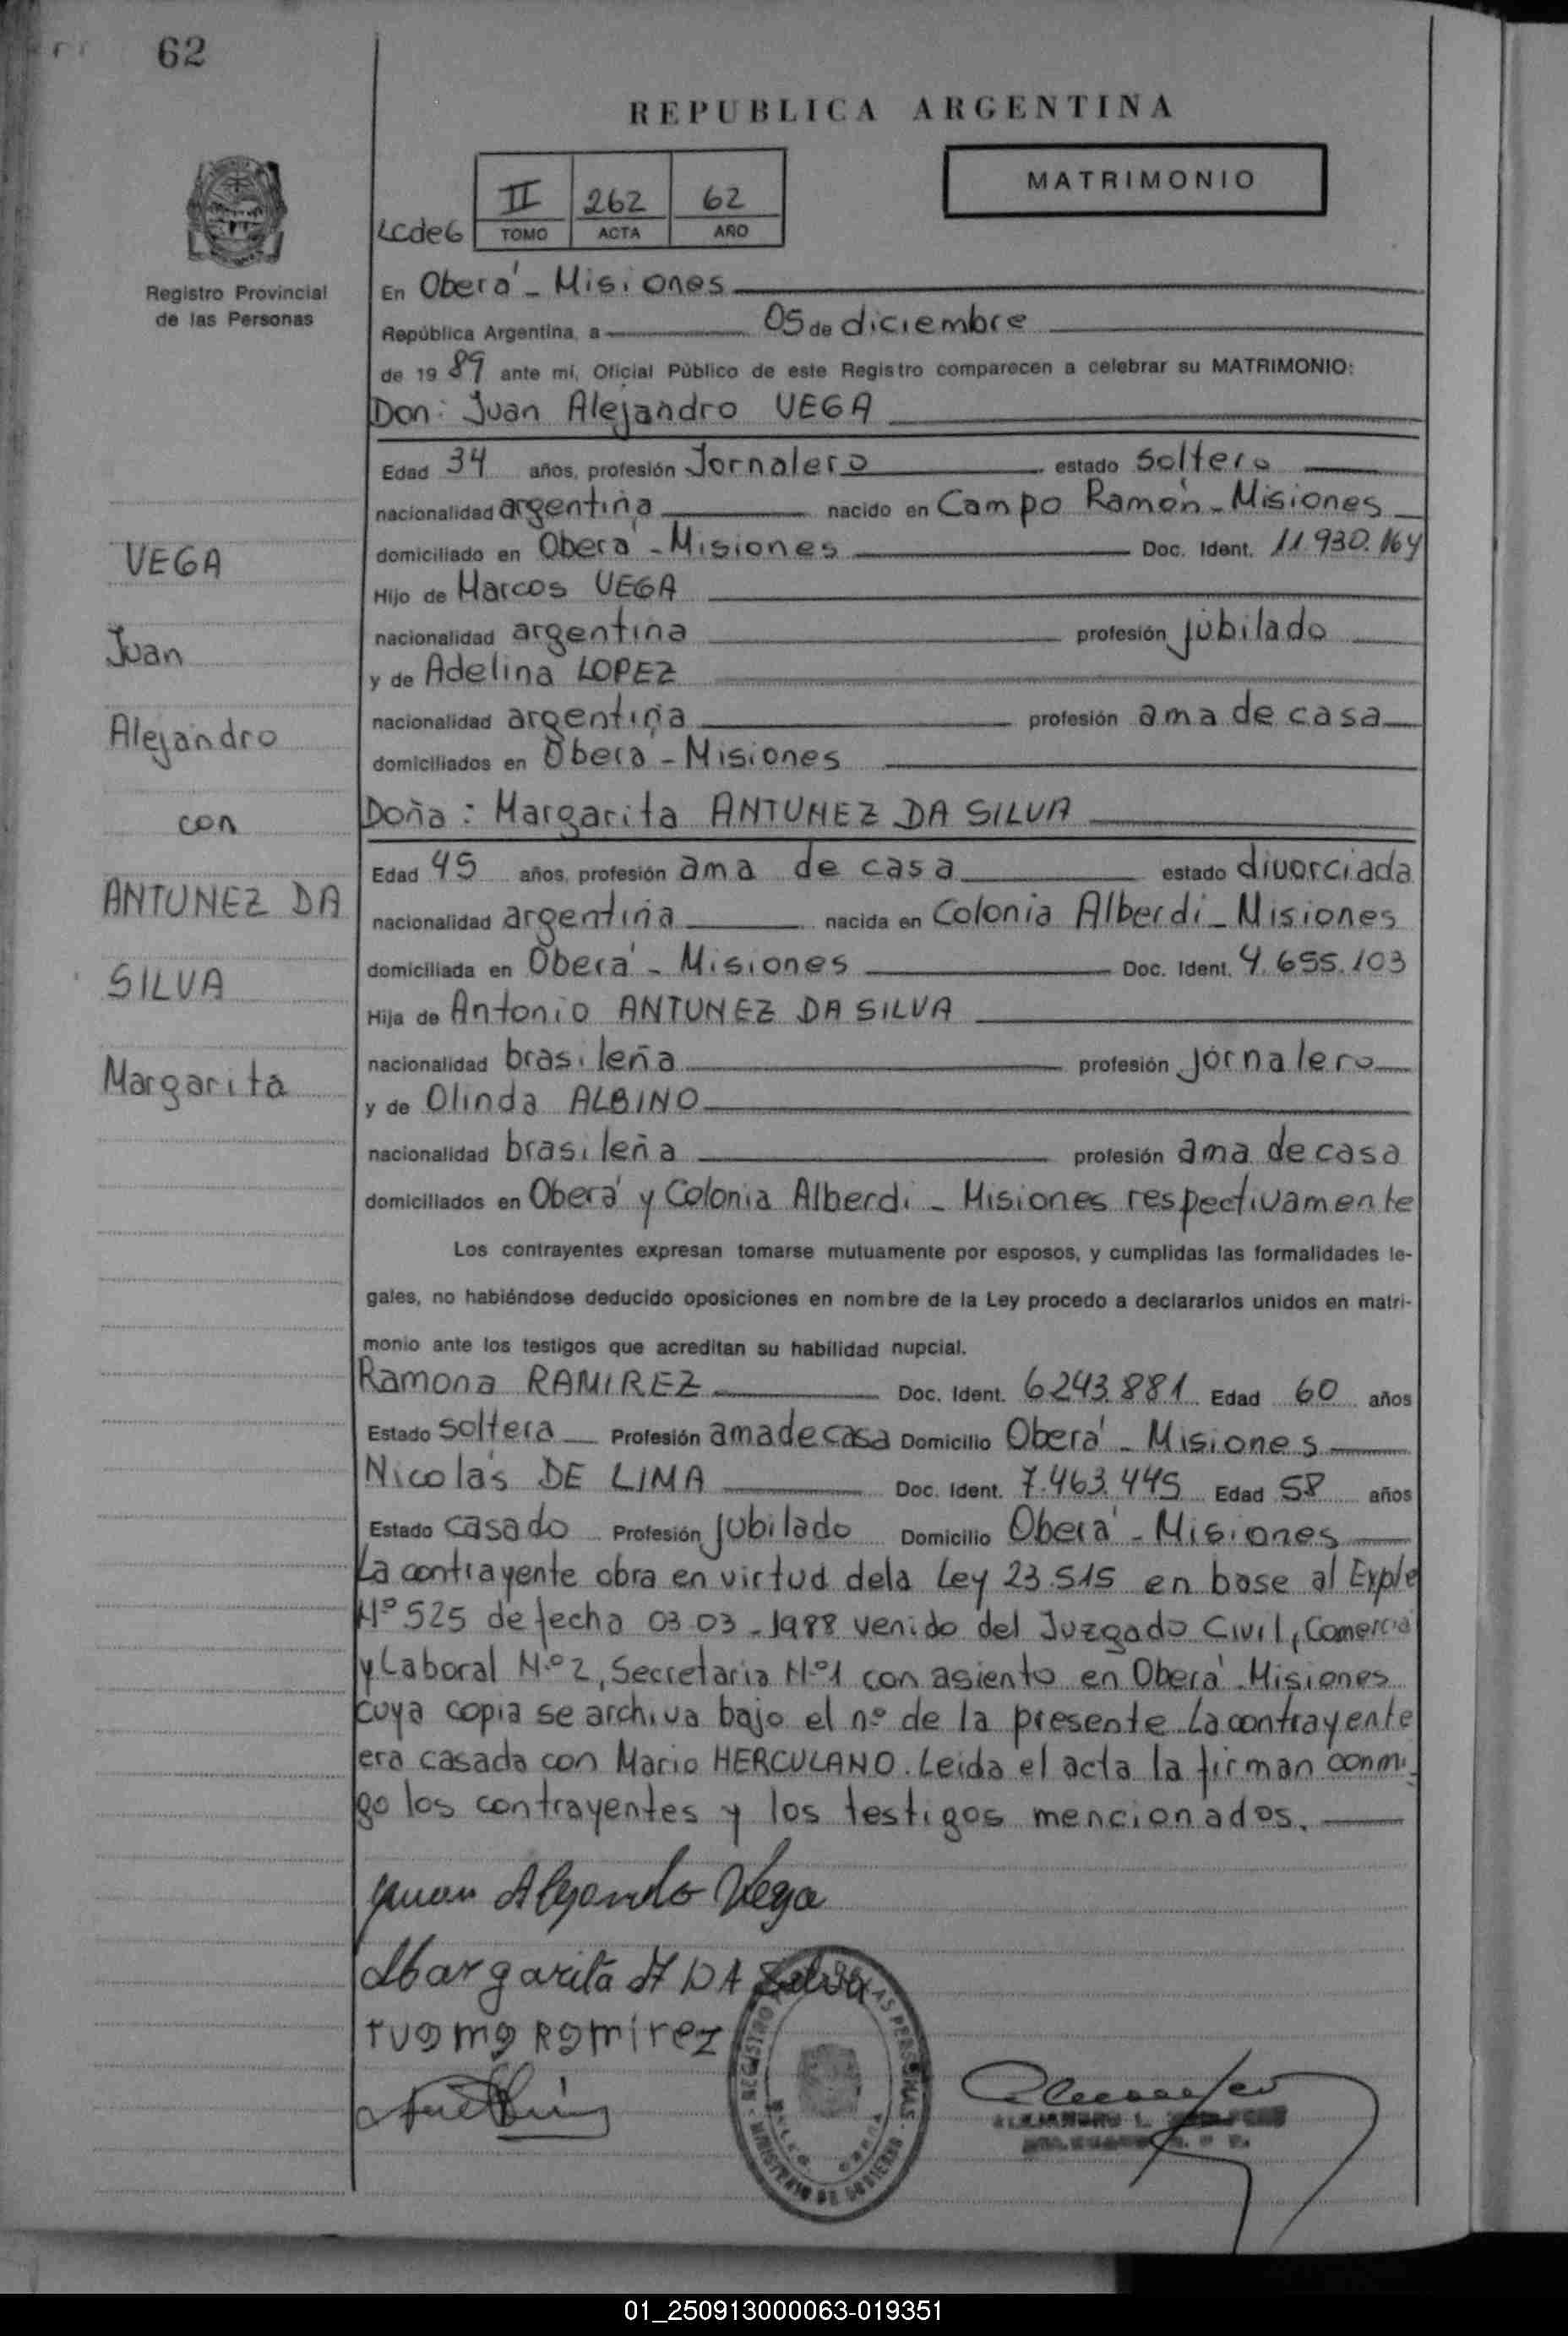 62
REPUBLICA ARGENTINA
MATRIMONIO
II 262 62
LCde6 TOMO ACTA AÑO
Registro Provincial
de las Personas
En Oberá - Misiones
República Argentina, a 05 de diciembre
de 19 89 ante mí, Oficial Público de este Registro comparecen a celebrar su MATRIMONIO:
Don: Juan Alejandro VEGA
Edad 34 años, profesión Jornalero estado soltero
nacionalidad argentina nacido en Campo Ramón - Misiones
domiciliado en Oberá - Misiones Doc. Ident. 11.930.164
Hijo de Marcos VEGA
nacionalidad argentina profesión jubilado
y de Adelina LOPEZ
nacionalidad argentina profesión ama de casa
domiciliados en Oberá - Misiones
Doña: Margarita ANTUNEZ DA SILVA
Edad 45 años, profesión ama de casa estado divorciada
nacionalidad argentina nacida en Colonia Alberdi - Misiones
domiciliada en Oberá - Misiones Doc. Ident. 4.655.103
Hija de Antonio ANTUNEZ DA SILVA
nacionalidad brasileña profesión jornalero
y de Olinda ALBINO
nacionalidad brasileña profesión ama de casa
domiciliados en Oberá y Colonia Alberdi - Misiones respectivamente
Los contrayentes expresan tomarse mutuamente por esposos, y cumplidas las formalidades le-
gales, no habiéndose deducido oposiciones en nombre de la Ley procedo a declararlos unidos en matri-
monio ante los testigos que acreditan su habilidad nupcial.
Ramona RAMIREZ Doc. Ident. 6243.881 Edad 60 años
Estado soltera Profesión ama de casa Domicilio Oberá - Misiones
Nicolás DE LIMA Doc. Ident. 7.463.445 Edad 58 años
Estado casado Profesión jubilado Domicilio Oberá - Misiones
La contrayente obra en virtud dela Ley 23.515 en base al Expte
Nº 525 de fecha 03-03-1988 venido del Juzgado Civil, Comercia
y Laboral N.º 2, Secretaria N.º 1 con asiento en Oberá - Misiones
cuya copia se archiva bajo el nº de la presente. La contrayente
era casada con Mario HERCULANO. Leida el acta la firman conmi-
go los contrayentes y los testigos mencionados.
VEGA
Juan
Alejandro
con
ANTUNEZ DA
SILVA
Margarita
Juan Alejandro Vega
Margarita A DA Silva
Ramirez
REGISTRO DE LAS PERSONAS
MINISTERIO DE GOBIERNO
01_250913000063-019351